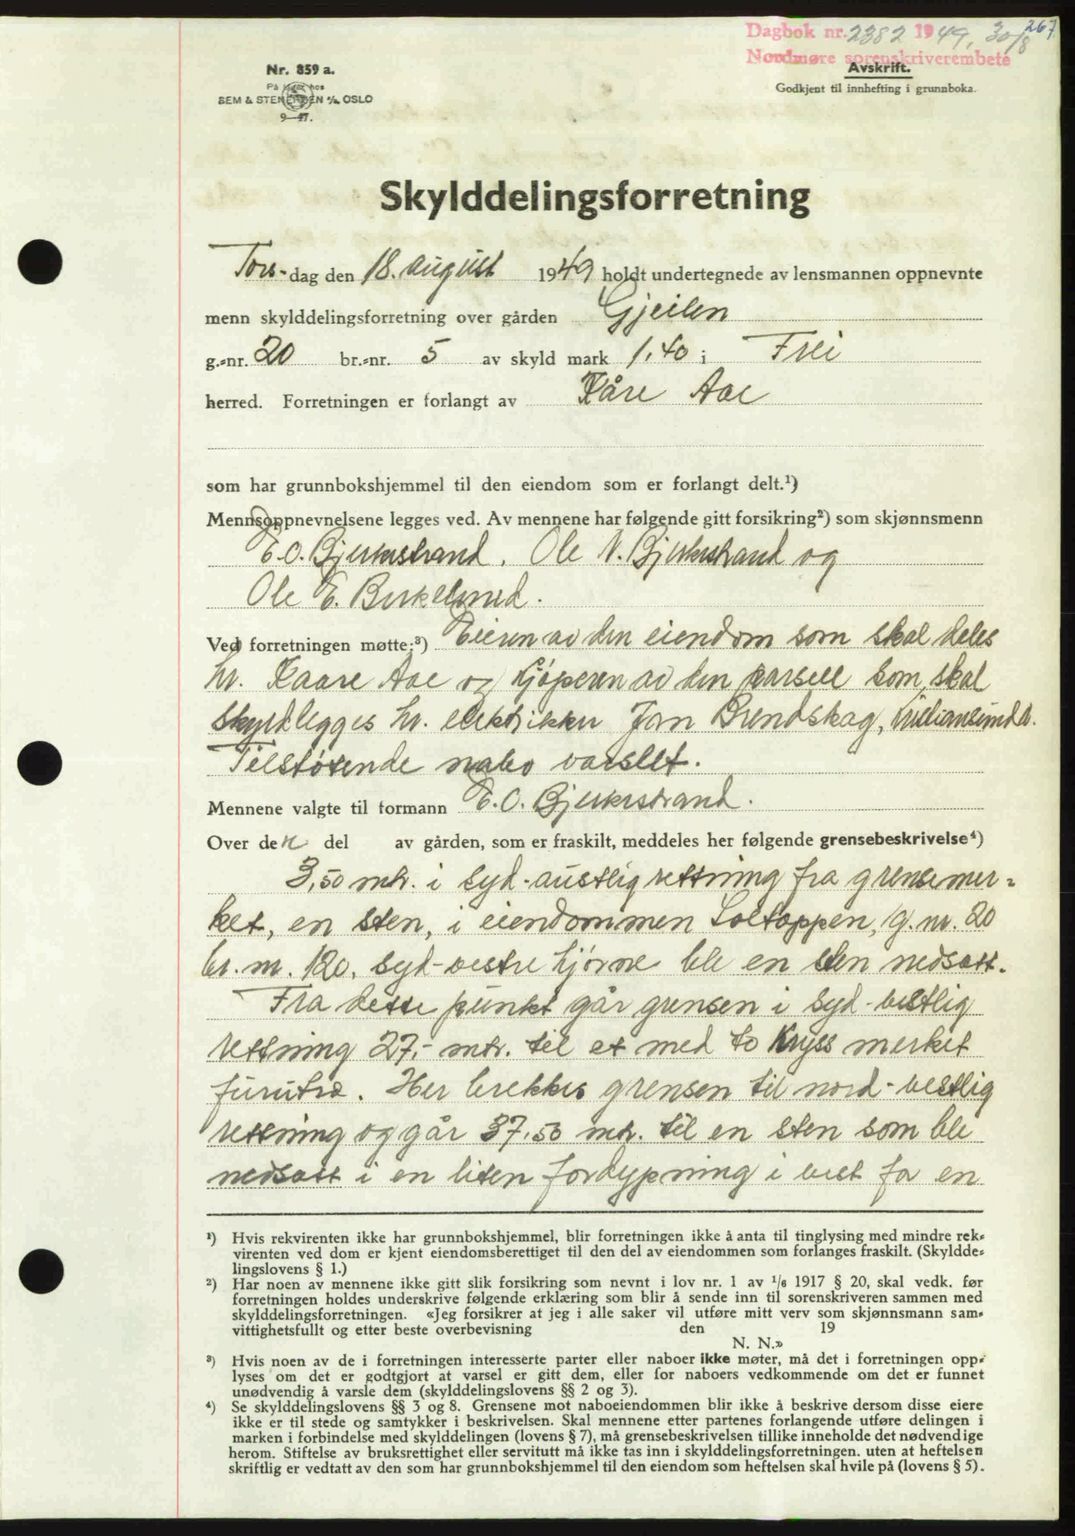 Dagbok nr. 2382 1949, 30/8 267
Nordmøre sorenskriverembete
Nr. 859 a.
På lager hos
SEM & STENERSEN A/S, OSLO
9—47.
Avskrift.
Godkjent til innhefting i grunnboka.
Skylddelingsforretning
Tors-dag den 18. august 1949 holdt undertegnede av lensmannen oppnevnte
menn skylddelingsforretning over gården Gjeilen
g.-nr. 20 br.-nr. 5 av skyld mark 1,40 i Frei
herred. Forretningen er forlangt av Kåre Aae
som har grunnbokshjemmel til den eiendom som er forlangt delt.¹)
Mennsoppnevnelsene legges ved. Av mennene har følgende gitt forsikring²) som skjønnsmenn
E.O. Bjerkestrand, Ole N. Bjerkestrand og
Ole E. Birkelund.
Ved forretningen møtte:³) Eieren av den eiendom som skal deles
hr. Kaare Aae og kjøperen av den parsell som skal
skyldlegges hr. elektriker Jan Brendskag, Kristiansund N.
Tilstøtende nabo varslet.
Mennene valgte til formann E.O. Bjerkestrand.
Over den del av gården, som er fraskilt, meddeles her følgende grensebeskrivelse⁴)
3,50 mtr. i syd-austlig rettning fra grensemer-
ket, en sten, i eiendommen Soltoppen, g. nr. 20
br. nr. 120, syd-vestre hjørne ble en sten nedsatt.
Fra dette punkt går grensen i syd-vestlig
rettning 27,- mtr. til et med to kryss merket
furutre. Her brekkes grensen til nord-vestlig
rettning og går 37,50 mtr. til en sten som ble
nedsatt i en liten fordypning i vest for en
¹) Hvis rekvirenten ikke har grunnbokshjemmel, blir forretningen ikke å anta til tinglysing med mindre rek-
virenten ved dom er kjent eiendomsberettiget til den del av eiendommen som forlanges fraskilt. (Skyldde-
lingslovens § 1.)
²) Har noen av mennene ikke gitt slik forsikring som nevnt i lov nr. 1 av 1/6 1917 § 20, skal vedk. før
forretningen holdes underskrive følgende erklæring som blir å sende inn til sorenskriveren sammen med
skylddelingsforretningen. «Jeg forsikrer at jeg i alle saker vil utføre mitt verv som skjønnsmann sam-
vittighetsfullt og etter beste overbevisning den 19
N. N.»
³) Hvis noen av de i forretningen interesserte parter eller naboer ikke møter, må det i forretningen opp-
lyses om det er godtgjort at varsel er gitt dem, eller for naboers vedkommende om det er funnet
unødvendig å varsle dem (skylddelingslovens §§ 2 og 3).
⁴) Se skylddelingslovens §§ 3 og 8. Grensene mot naboeiendommen blir ikke å beskrive dersom disse eiere
ikke er til stede og samtykker i beskrivelsen. Skal mennene etter partenes forlangende utføre delingen i
marken i forbindelse med skylddelingen (lovens § 7), må grensebeskrivelsen tillike inneholde det nødvendige
herom. Stiftelse av bruksrettighet eller servitutt må ikke tas inn i skylddelingsforretningen, uten at heftelsen
skriftlig er vedtatt av den som har grunnbokshjemmel til den eiendom som heftelsen skal hvile på (lovens § 5).